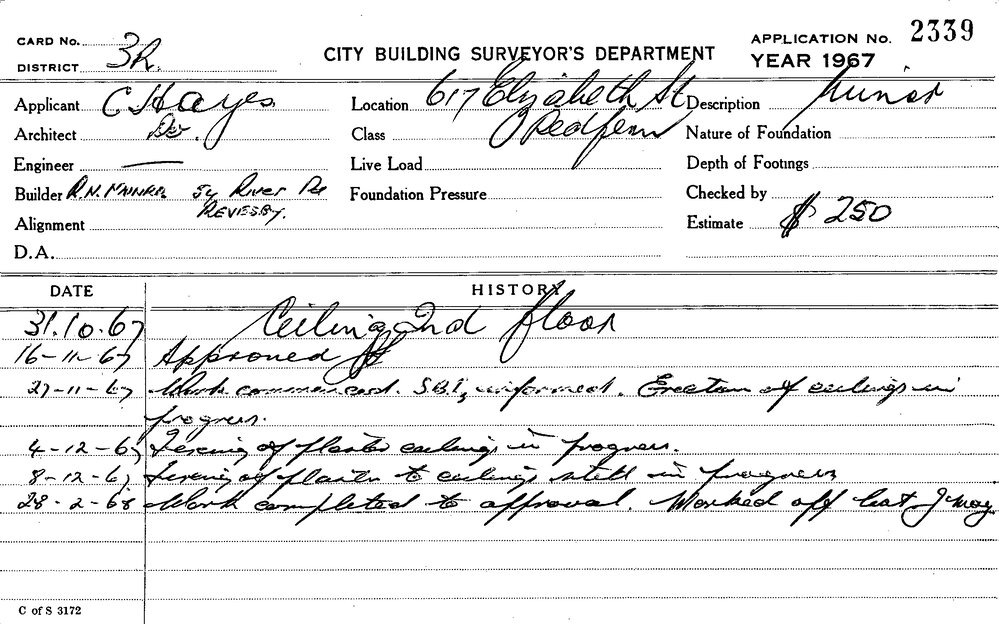 CARD No.
DISTRICT 3R.
CITY BUILDING SURVEYOR'S DEPARTMENT
APPLICATION No. 2339
YEAR 1967
Applicant C Hayes
Location 617 Elizabeth St Redfern
Description Minor
Architect Do.
Class
Nature of Foundation
Engineer —
Live Load
Depth of Footings
Builder R.N. Munro, 54 River Rd Revesby.
Foundation Pressure
Checked by
Alignment
Estimate $ 250
D.A.
DATE HISTORY
31.10.67 Ceiling 2nd floor
16-11-67 Approved
27-11-67 Work commenced. S.B.I. informed. Erection of ceilings in
progress.
4-12-67 Fixing of plaster ceilings in progress.
8-12-67 Fixing of plaster to ceilings still in progress
28-2-68 Work completed to approval. Marked off
C of S 3172